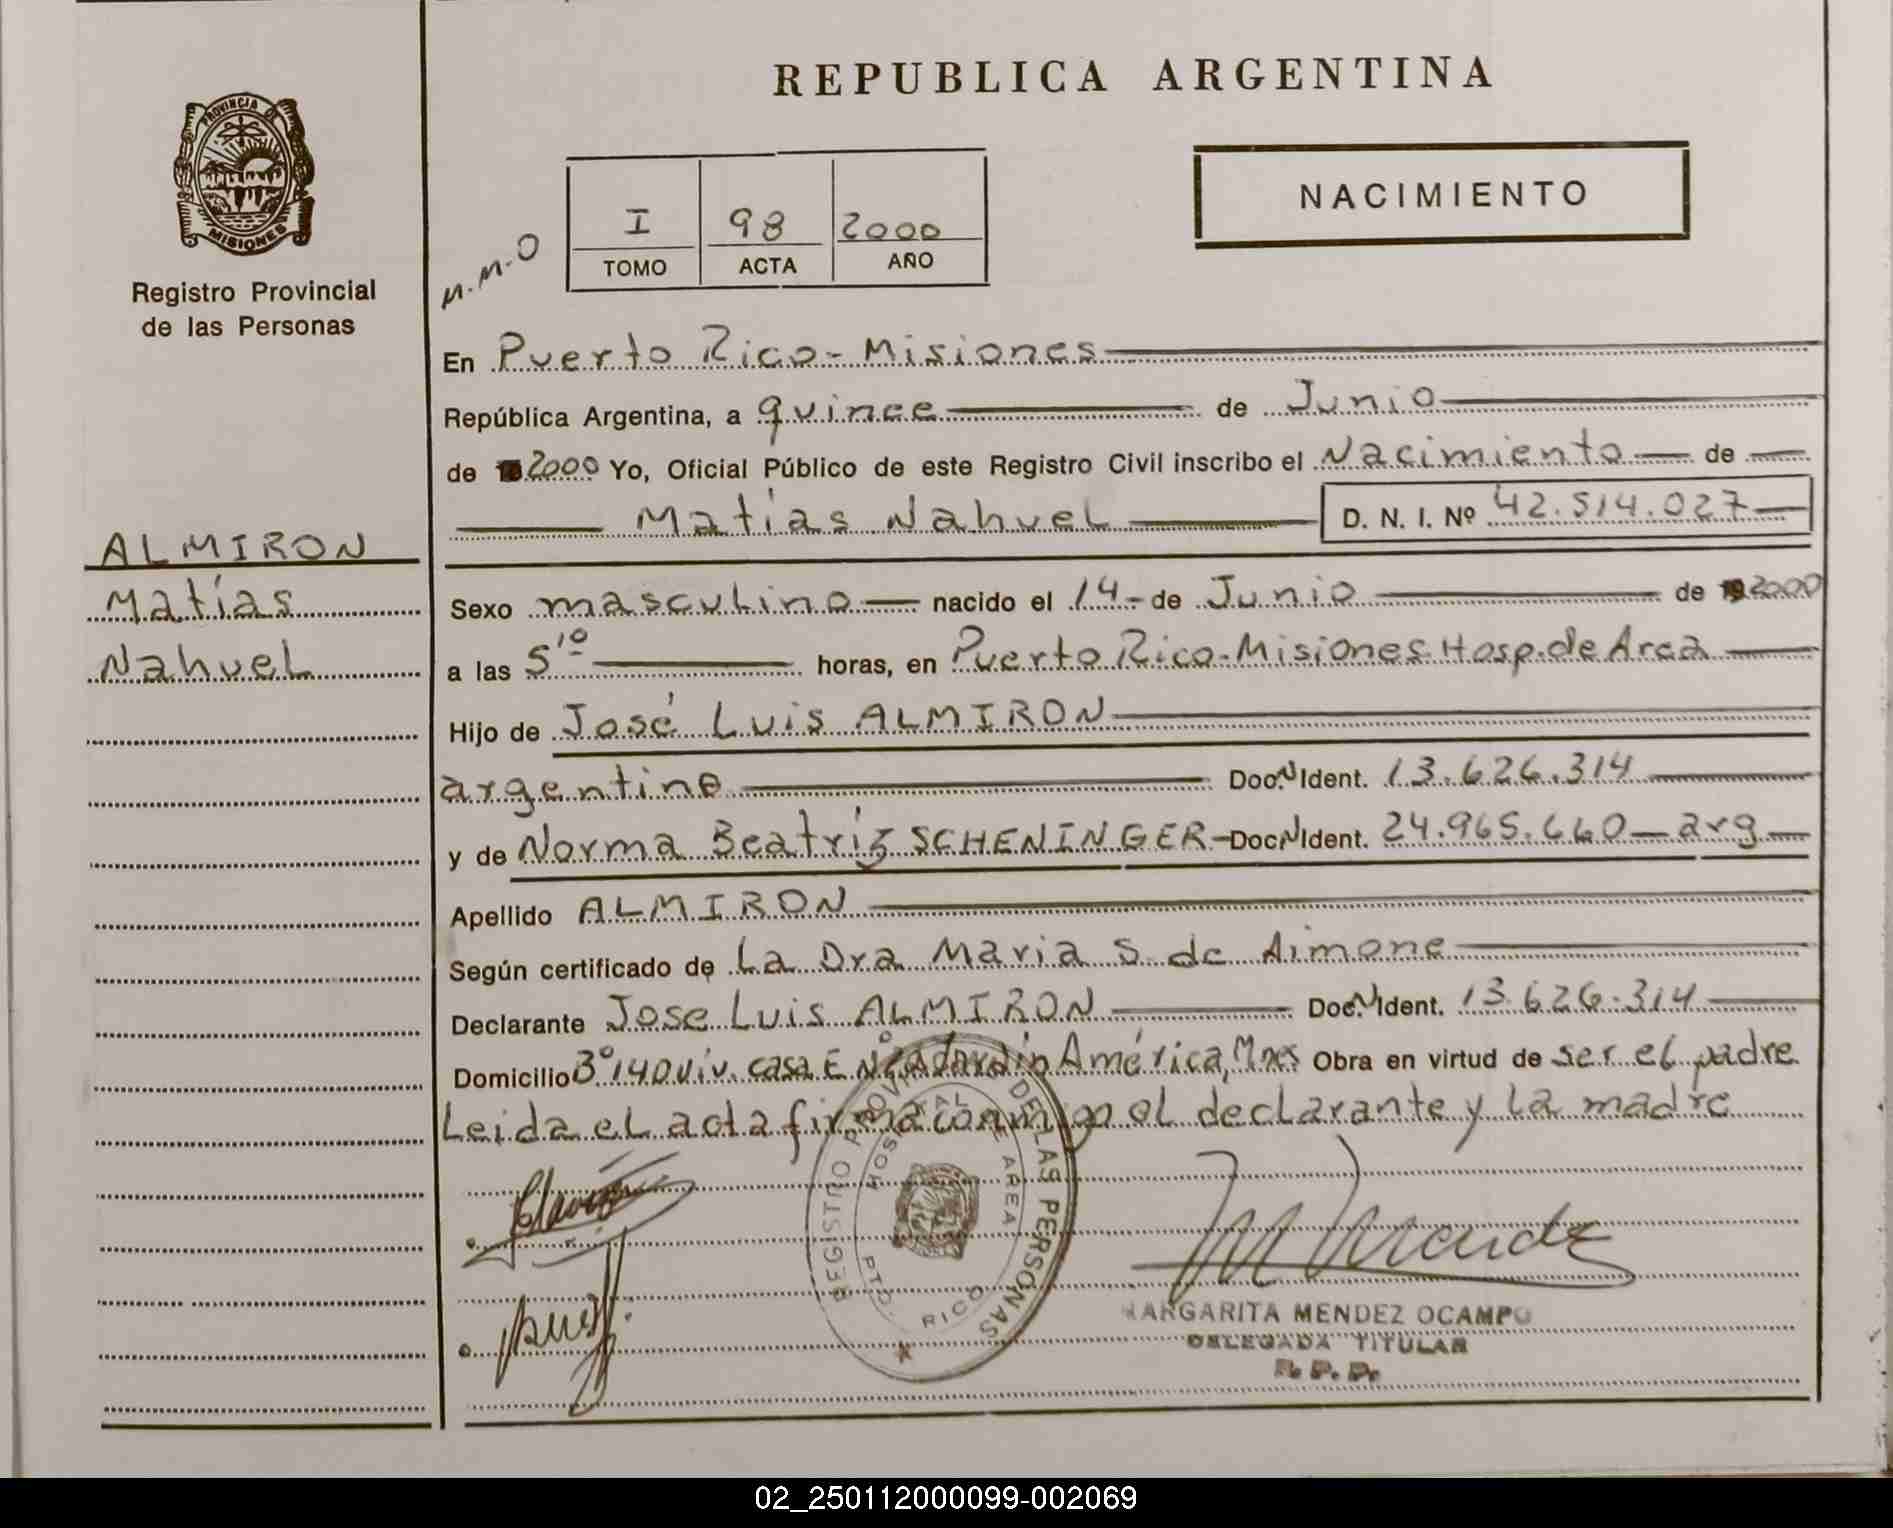 REPUBLICA ARGENTINA
PROVINCIA DE
MISIONES
Registro Provincial
de las Personas
NACIMIENTO
M.M.O
I 98 2000
TOMO ACTA AÑO
En Puerto Rico - Misiones
República Argentina, a quince de Junio
de 2000 Yo, Oficial Público de este Registro Civil inscribo el Nacimiento de
Matías Nahuel D. N. I. Nº 42.514.027
ALMIRON
Matías
Nahuel
Sexo masculino nacido el 14 - de Junio de 2000
a las 5 10 horas, en Puerto Rico - Misiones Hosp. de Area
Hijo de José Luis ALMIRON
argentino Doc. N Ident. 13.626.314
y de Norma Beatríz SCHENINGER - Doc. N Ident. 24.965.660 - arg
Apellido ALMIRON
Según certificado de La Dra Maria S. de Aimone
Declarante Jose Luis ALMIRON Doc. N Ident. 13.626.314
Domicilio Bº 140 viv. casa E Nº Jardín América, Mnes Obra en virtud de ser el padre
Leida el acta firma conmigo el declarante y la madre
REGISTRO PROVINCIAL DE LAS PERSONAS
HOSPITAL DE AREA
PTO. RICO
MARGARITA MENDEZ OCAMPO
DELEGADA TITULAR
R. P. P.
02_250112000099-002069